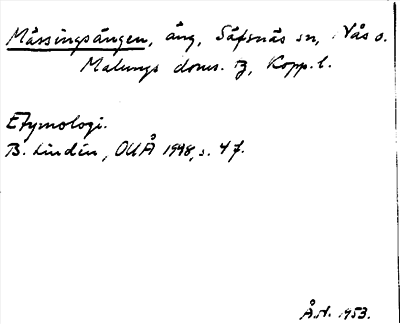 Mässingsängen, äng, Säfsnäs sn, Nås o.
Malungs doms. B, Kopp. l.
Etymologi.
B. Lindén, OUÅ 1948, s. 47.
Å.N. 1953.